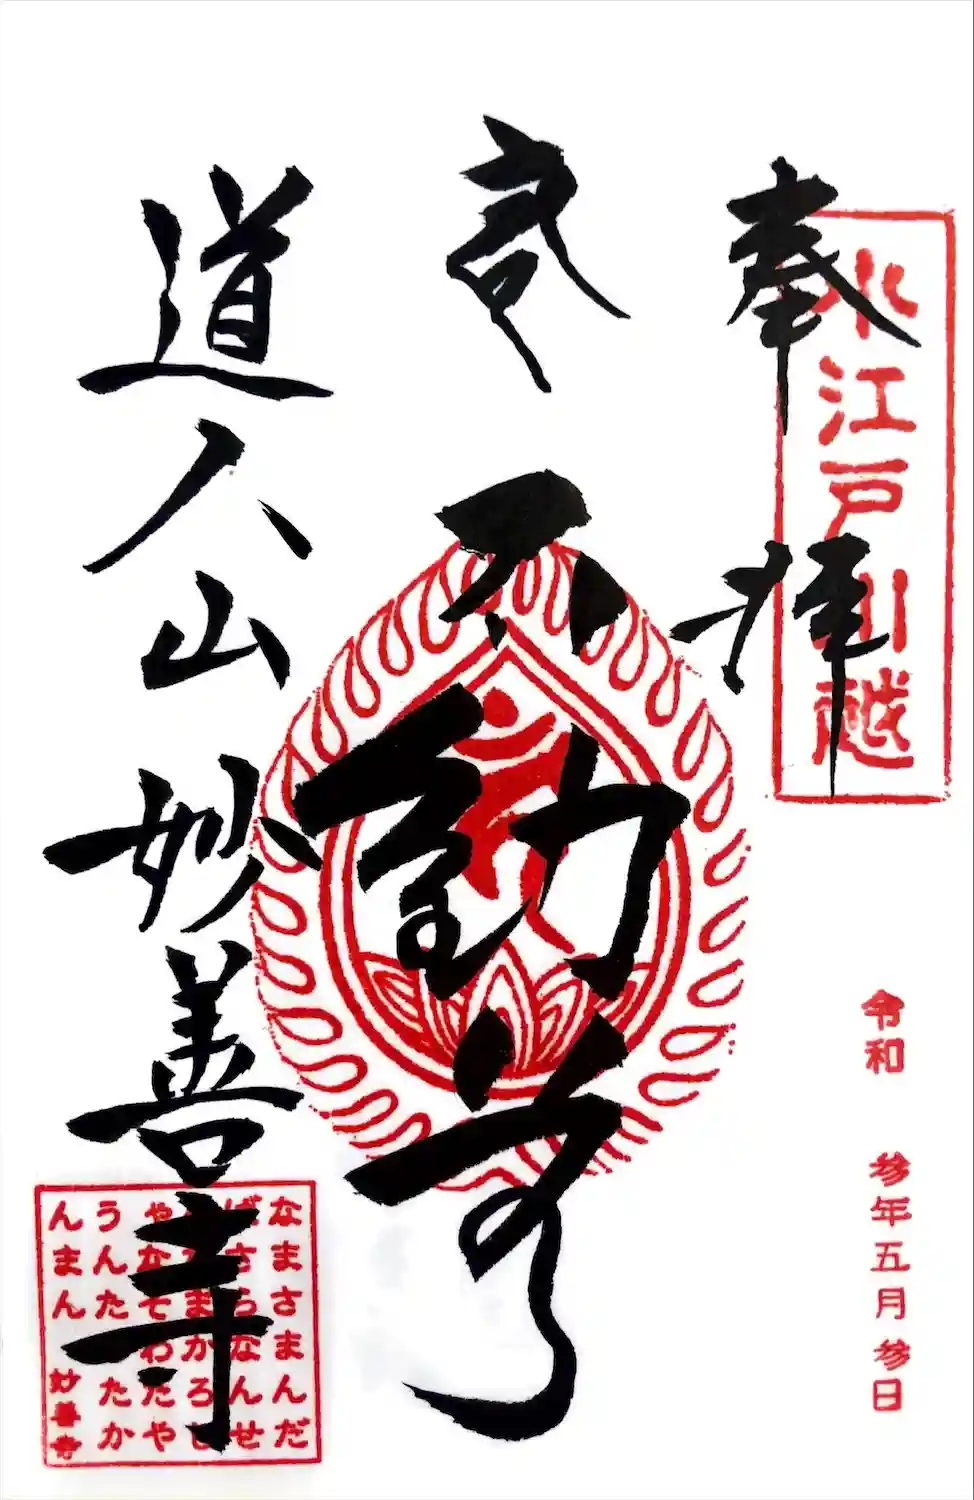 奉拝
小江戸川越
令和 参年五月参日
不動尊
道人山 妙善寺
なまさまんだ
ばさらなんせ
まかろし
やなそわたや
うんた たか
んまん 妙善寺